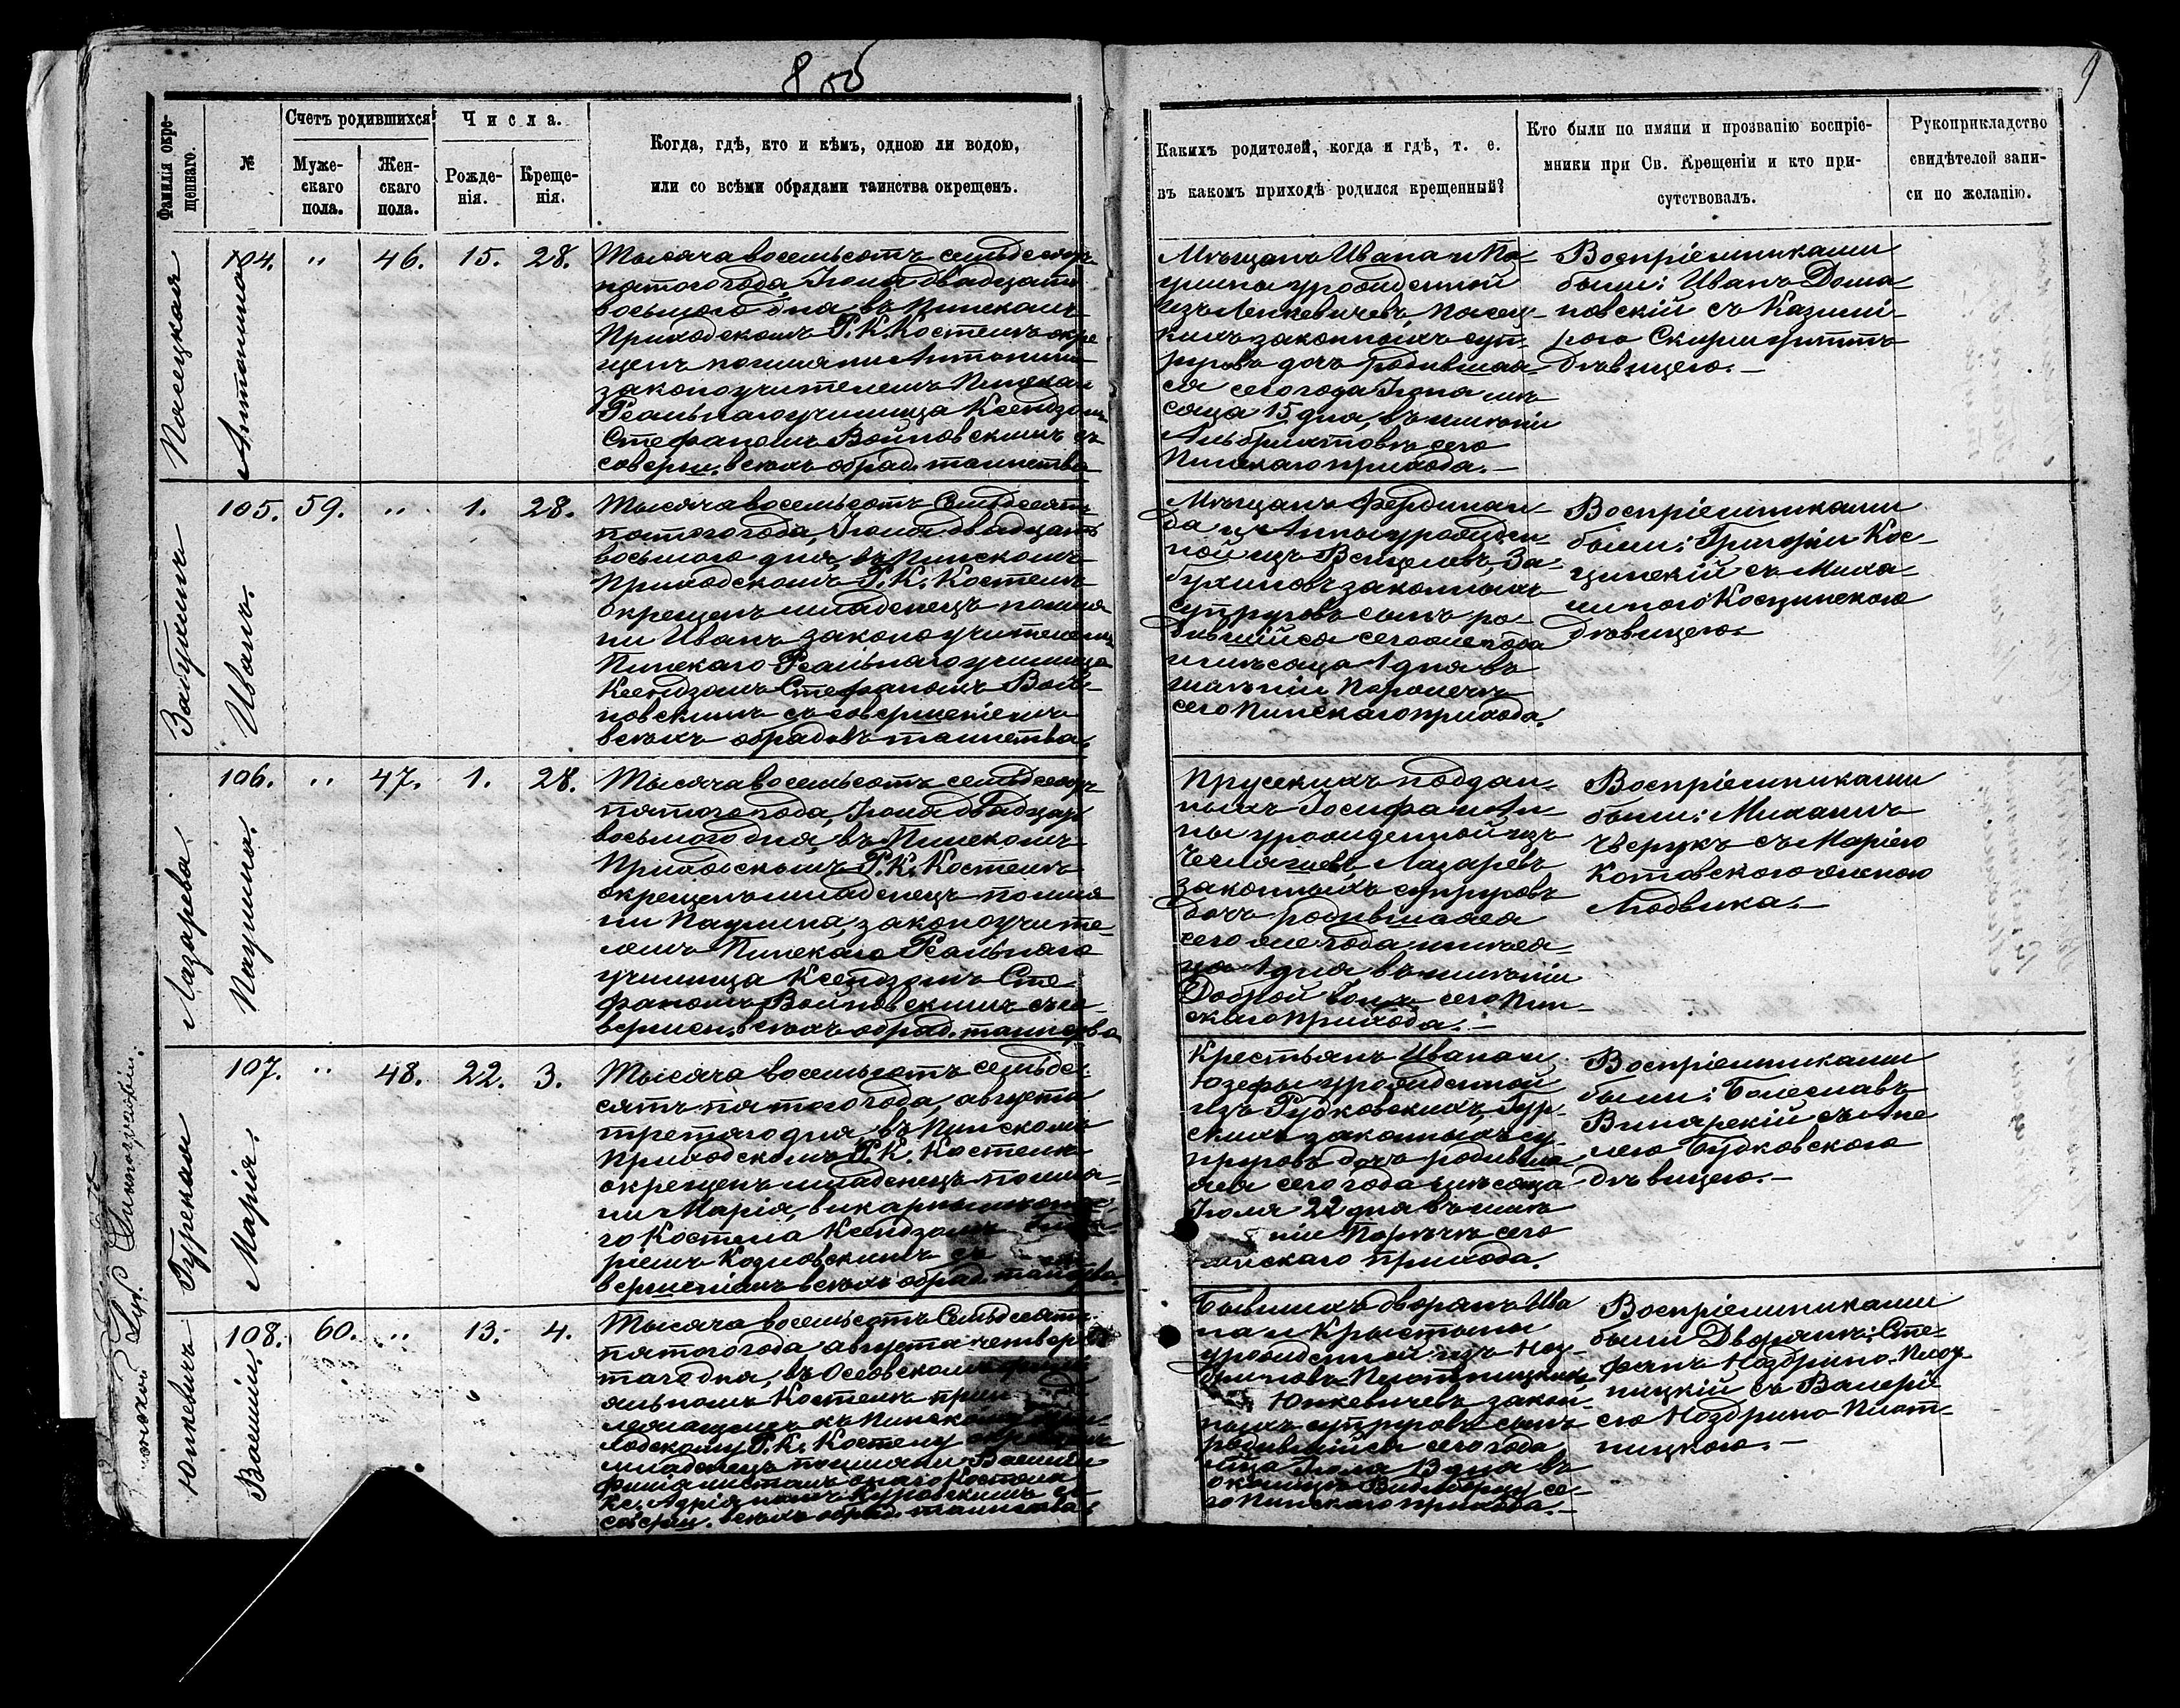 8 об
9
Фамилія окре-
щеннаго.
№
Счетъ родившихся
Муже-
скаго
пола.
Жен-
скаго
пола.
Числа.
Рожде-
нія.
Креще-
нія.
Когда, гдѣ, кто и кѣмъ, одною ли водою,
или со всѣми обрядами таинства окрещенъ.
Какихъ родителей, когда и гдѣ, т. е.
въ какомъ приходѣ родился крещенный?
Кто были по имяни и прозванію воспріе-
мники при Св. Крещеніи и кто при-
сутствовалъ.
Рукоприкладство
свидѣтелей запи-
си по желанію.
Антонина
104. " 46. 15. 28.
Тысяча восемьсотъ семьдесятъ
пятого года, Іюля двадцать
восьмого дня, въ Пинскомъ
Приходскомъ Р. К. Костелѣ окре
щенъ по имяни Антонина
законоучителемъ Пинскаго
Реальнаго училища Ксендзомъ
Стефаномъ Войновскимъ съ
соверш. всѣхъ обряд. таинства
Мѣщанъ Ивана и
урожденной
изъ
нихъ законныхъ суп-
руговъ дочь родившая-
ся сего года Іюля мѣ
сяца 15 дня, въ имѣніи
сего
Пинскаго прихода. —
Воспріемниками
были: Иванъ Дома-
новскій съ Казимі-
рою Скирмунттъ
дѣвицею. —
Иванъ.
105. 59. " 1. 28.
Тысяча восемьсотъ Семьдесятъ
пятого года, Іюля двадцать
восьмого дня, въ Пинскомъ
Приходскомъ Р. К. Костелѣ
окрещенъ младенецъ по имя
ни Иванъ законоучителемъ
Пинскаго Реальнаго училища
Ксендзомъ Стефаномъ Вой-
новскимъ съ совершеніемъ
всѣхъ обрядовъ таинства.
Мѣщанъ Фердинан-
да и Анны урожден-
ной изъ
законныхъ
супруговъ сынъ ро-
дившійся сего же года
и мѣсяца 1 дня въ
имѣніи
сего Пинскаго прихода.
Воспріемниками
были: Григорій Кос-
цинскій съ Миха-
линою Косцинскою
дѣвицею. —
Лазарева
Паулина.
106. " 47. 1. 28.
Тысяча восемьсотъ семьдесятъ
пятого года, Іюля двадцать
восьмого дня, въ Пинскомъ
Приходскомъ Р. К. Костелѣ
окрещенъ младенецъ по имя
ни Паулина, законоучите-
лемъ Пинскаго Реальнаго
училища Ксендзомъ Сте-
фаномъ Войновскимъ съ со-
вершен. всѣхъ обряд. таинства
Прусскихъ поддан-
ныхъ Іосифа и Ан-
ны урожденной изъ
Лазаревъ
законныхъ супруговъ
дочь родившаяся
сего же года и мѣся-
ца 1 дня, въ имѣніи
Доброй Волѣ сего Пин-
скаго прихода. —
Воспріемниками
были: Михаилъ
Чверукъ съ Маріею
Котовскою женою
Людвика. —
Гурская
Марія.
107. " 48. 22. 3.
Тысяча восемьсотъ семьде-
сятъ пятого года, августа
третяго дня, въ Пинскомъ
Приходскомъ Р. К. Костелѣ
окрещенъ младенецъ по имя-
ни Марія, викарнымъ
го Костела Ксендзомъ
Козловскимъ съ
вершеніемъ всѣхъ обряд. таинства.
Крестьянъ Ивана и
Юзефы урожденной
изъ Рудковскихъ, Гур-
скихъ законныхъ су-
пруговъ дочь родивша-
яся сего года мѣсяца
Іюля 22 дня въ имѣ
ніи Порѣчѣ сего
скаго прихода.
Воспріемниками
были: Болеславъ
съ Ане
лею Будковскою
дѣвицею. —
Юшкевичъ
Василій.
108. 60. " 13. 4.
Тысяча восемьсотъ Семьдесятъ
пятого года, августа четвер
таго дня, въ Осовскомъ
альномъ Костелѣ
къ Пинскому При-
ходскому Р. К. Костелу
младенецъ по имяни Василій
Костела
Кс. съ
соверш. всѣхъ обряд. таинства.
Бывшихъ дворянъ Ива
на и Крыстыны
урожденной изъ Ноз-
дриновъ-Плотницкихъ
Юшкевичевъ, закон-
ныхъ супруговъ сынъ
родившійся сего года
Іюля 13 дня въ
околицѣ се-
го Пинскаго прихода. —
Воспріемниками
были Дворяне: Сте-
фанъ Ноздрино-Плот-
ницкій съ Валері-
ею Ноздрино-Плот-
ницкою. —